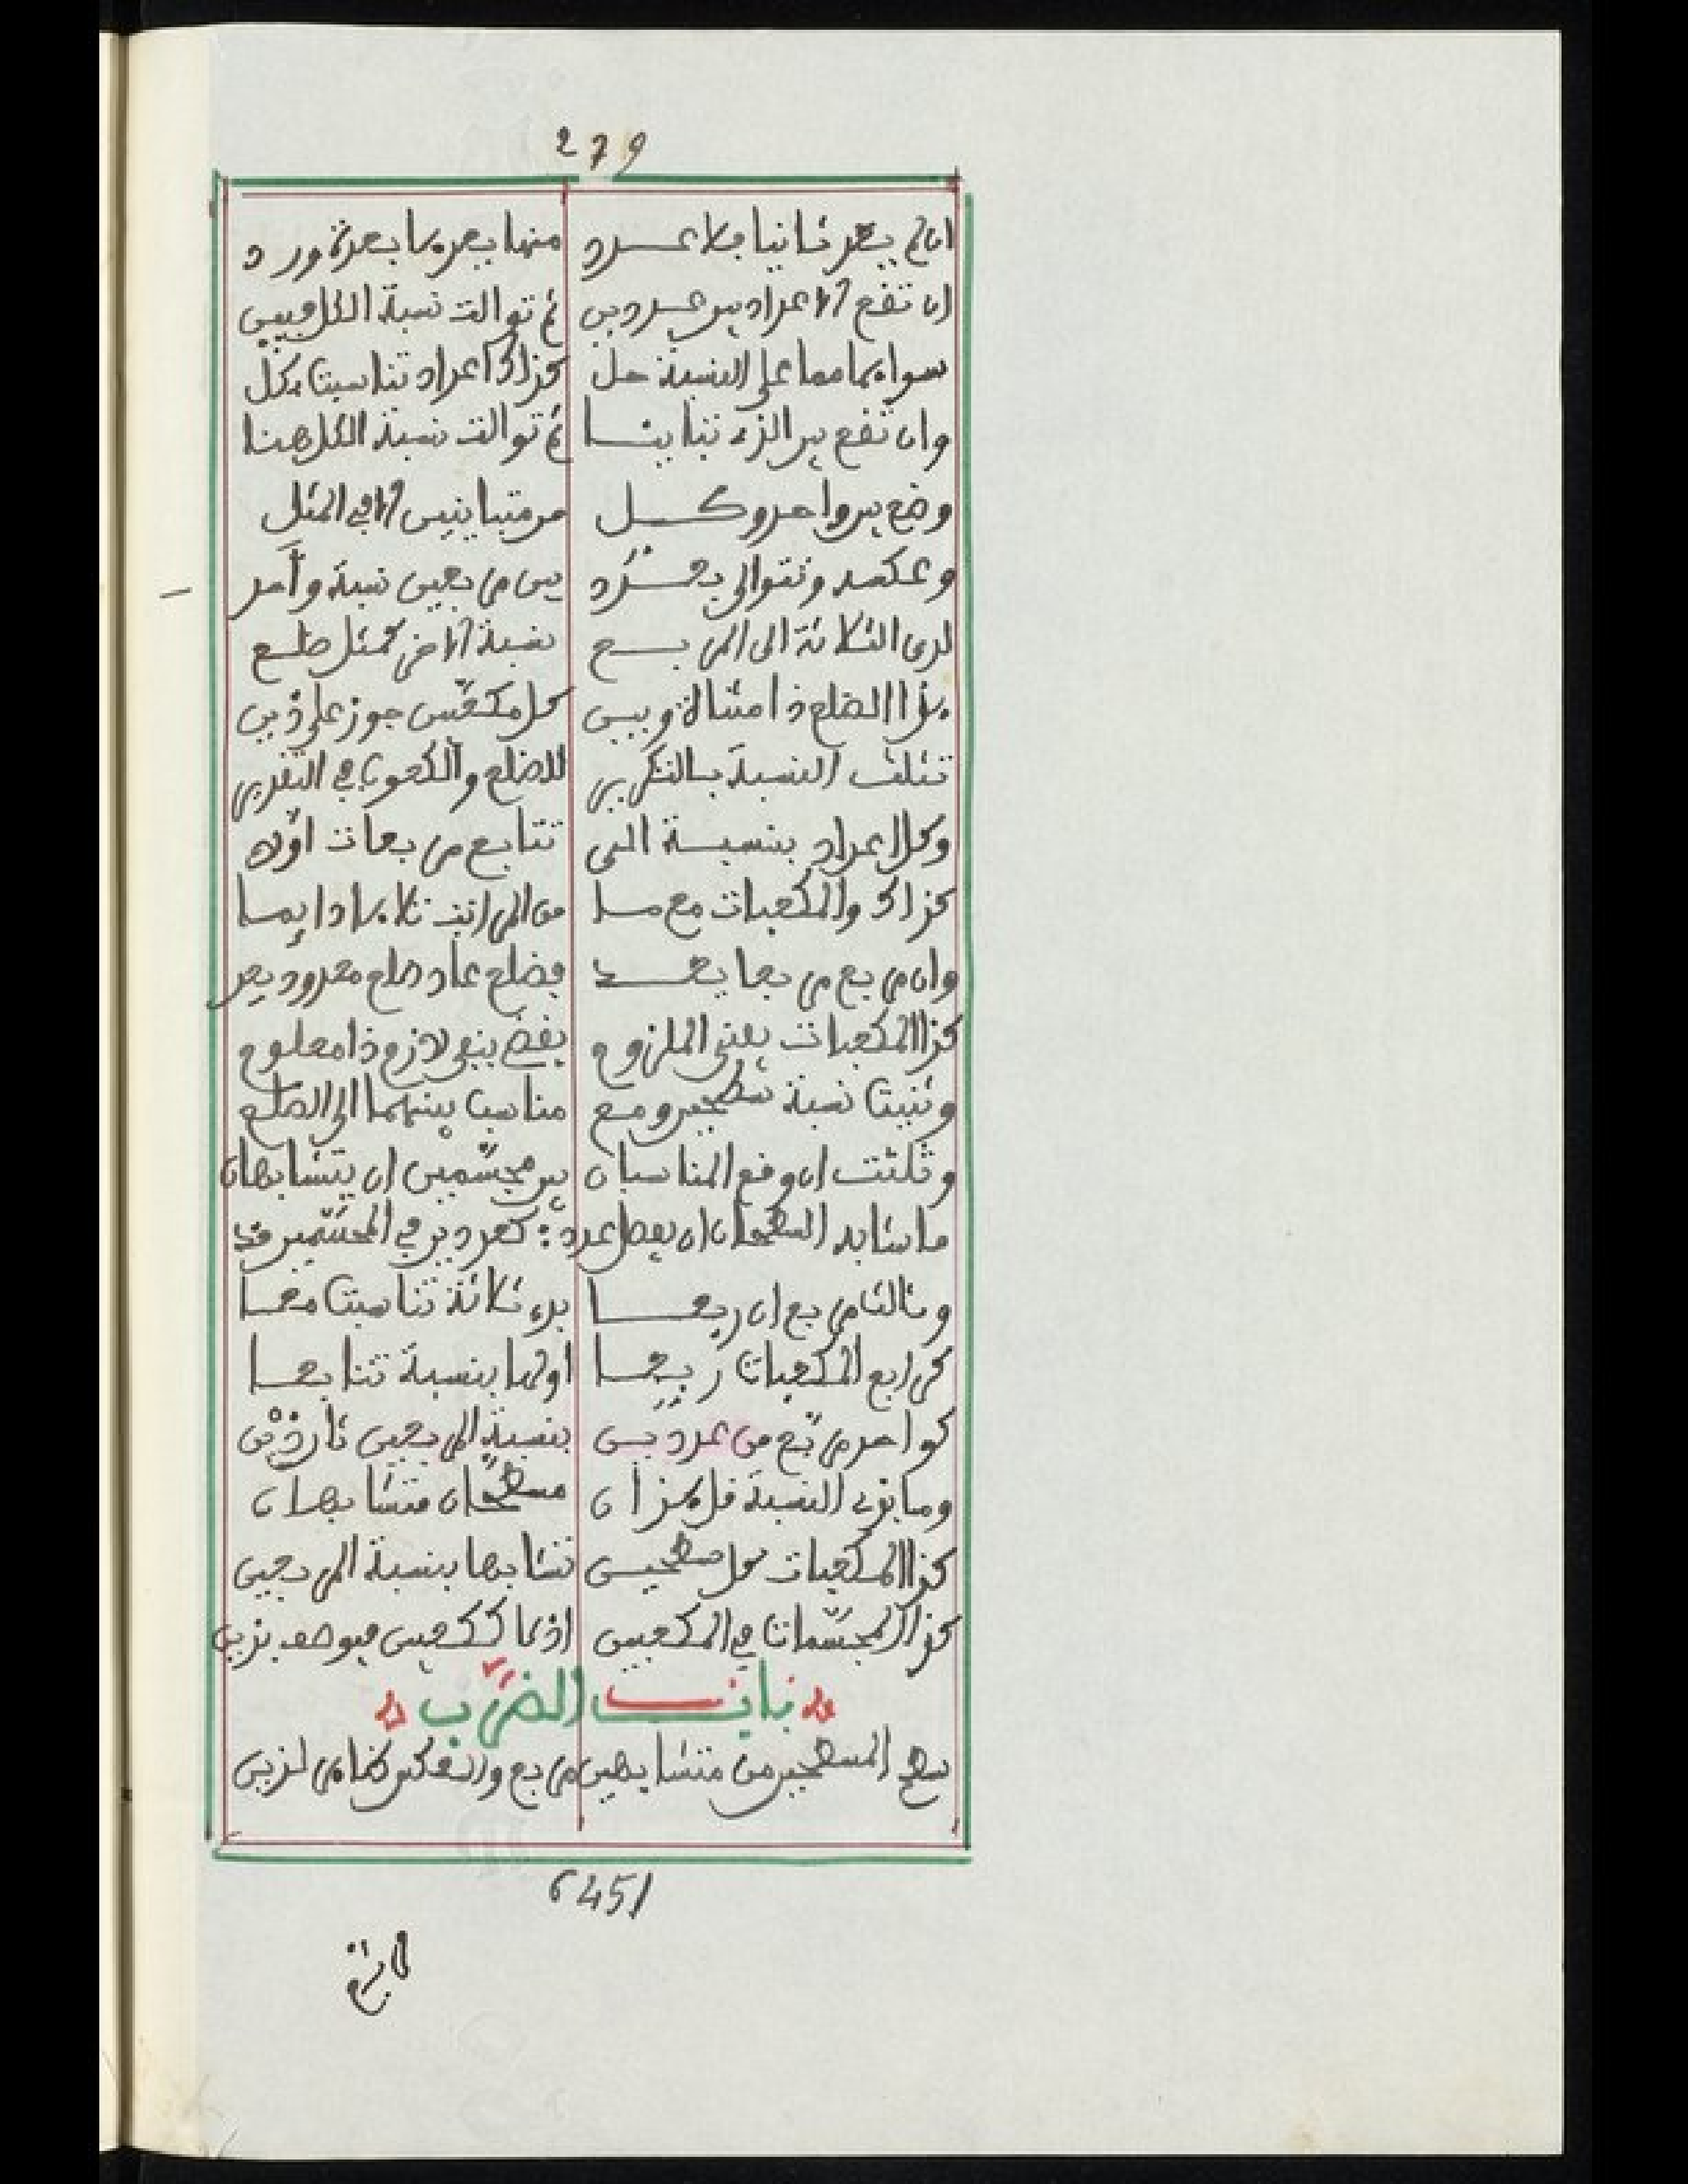 279
ان لم يعد ثانيا فلا عدد منها يعد ما بعده ورد
ان تقع الاعداد بين عددين ثم توالت نسبة الكل فبين
سواهما معا على النسبة حل كذاك اعداد تناسبت بكل
وان تقع بين الذي تباينا ثم توالت نسبة الكل هنا
وضع بين واحد وكل من متباينين في المثل
وعكسه وتتوالى بعدد بين مربعين نسبة وأحد
لدى الثلاثة الى المربع نسبة الاخرى كمثل ضلع
الضلع ذا مثالة وبين كل مكعبين جوز على ذين
تثلث النسبة بالتكرير للضلع والكعوب في التقدير
وكل اعداد بنسبة الى تتابع مربعات اولا
كذاك والمكعبات مع ما من المراتب تلاها دايما
وان مربع مربعا يعد فضلع عاد ضلع معدود يعد
كذا المكعبات يعني الملزوم بنفي لازم ذا معلوم
وثنيت نسبة سطحين ومع مناسبا بينهما الى الضلع
وثلثت ان وقع المناسبان بين مجسمين ان يتشابهان
ما شابه السطحان ان يفصل عدد : كعددين في المجسمين قد
وثالثا مربع ان ربعا بدء ثلاثة تناسبت معا
كرابع المكعبات ربعا اولها بنسبة تتابعا
كواحد مربع من عددين بنسبة المربعين ذين
وما بذي النسبة قل هذان مسطحان متشابهان
كذا المكعبات كل سطحين تشابها بنسبة المربعين
كذا المجسمات في المكعبين اذ بما ككعبين فيوصف بذين
باب الضرب
سطح المسطحين من متشابهين مربع والعكس كما من لذين
6451